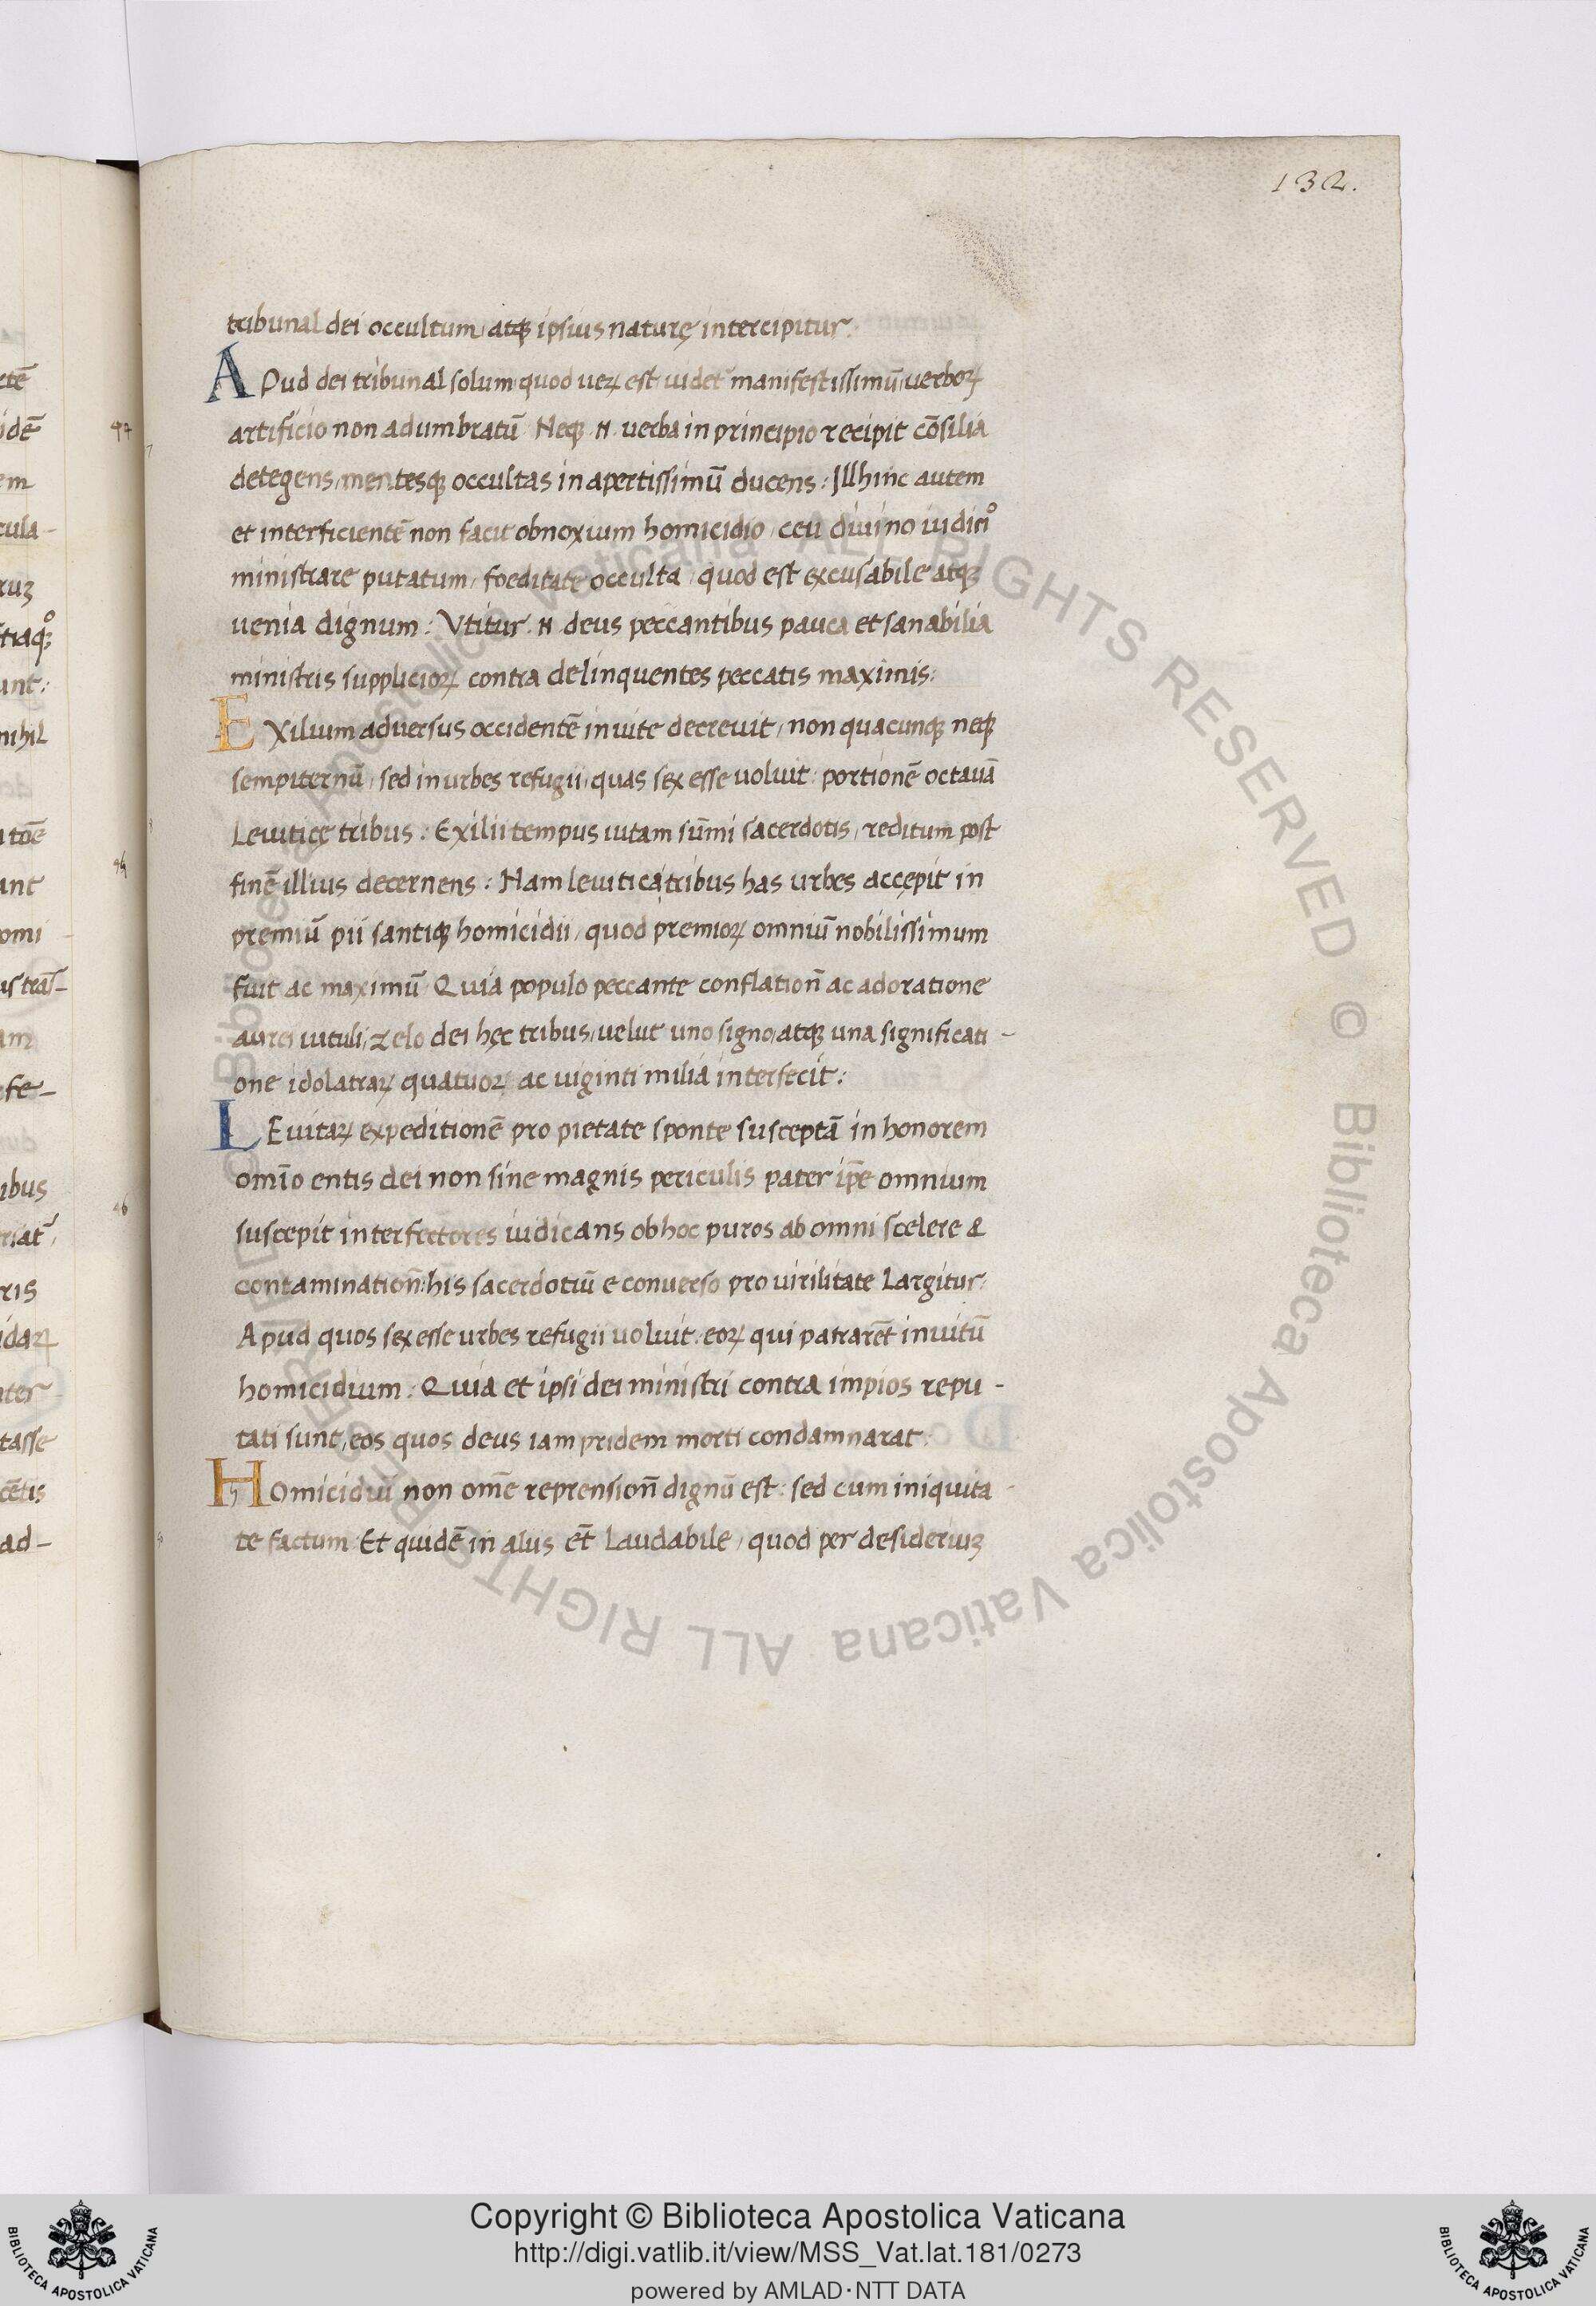 132.
tribunal dei occultum, atqꝫ ipsius naturę intercipitur.
APud dei tribunal solum quod ueꝝ est uidet᷑ manifestissimū, uerboꝝ
artificio non adumbratū Neqꝫ .N. uerba in principio recipit cōsilia
detegens, mentesqꝫ occultas in apertissimū ducens: Illhinc autem
et interficientē non facit obnoxium homicidio, ceu diuino iudicio
ministrare putatum, foeditate occulta, quod est excusabile atqꝫ
uenia dignum: Vtitur .N. deus peccantibus pauca et sanabilia
ministris supplicioꝝ contra delinquentes peccatis maximis:
EXilium aduersus occidentē inuite decreuit, non quacunqꝫ neqꝫ
sempiternū, sed in urbes refugii, quas sex esse uoluit: portionē octauā
Leuiticę tribus: Exilii tempus uitam sūmi sacerdotis, reditum post
finē illius decernens: Nam leuitica tribus has urbes accępit in
premiū pii santiqꝫ homicidii, quod premioꝝ omniū nobilissimum
fuit ac maximū Quia populo peccante conflation̄ ac adoratione
aurei uituli, zelo dei hęc tribus, uelut uno signo, atqꝫ una significati-
one idolatraꝝ quatuoꝝ ac uiginti milia interfecit:
LEuitaꝝ expeditionē pro pietate sponte susceptā in honorem
omīo entis dei non sine magnis periculis pater ip̄e omnium
suscepit interfectores iudicans ob hoc puros ab omni scelere &
contamination̄: his sacerdotiū e conuerso pro uirilitate Largitur:
Apud quos sex esse urbes refugii uoluit: eoꝝ qui patrarēt inuitū
homicidium: Quia et ipsi dei ministri contra impios repu-
tati sunt, eos quos deus iam pridem morti condamnarat:
HOmicidiū non om̄e reprension̄ dignū est: sed cum iniquita-
te factum Et quidē in aliis et̄ Laudabile, quod per desideriuꝫ
Copyright © Biblioteca Apostolica Vaticana
http://digi.vatlib.it/view/MSS_Vat.lat.181/0273
powered by AMLAD·NTT DATA